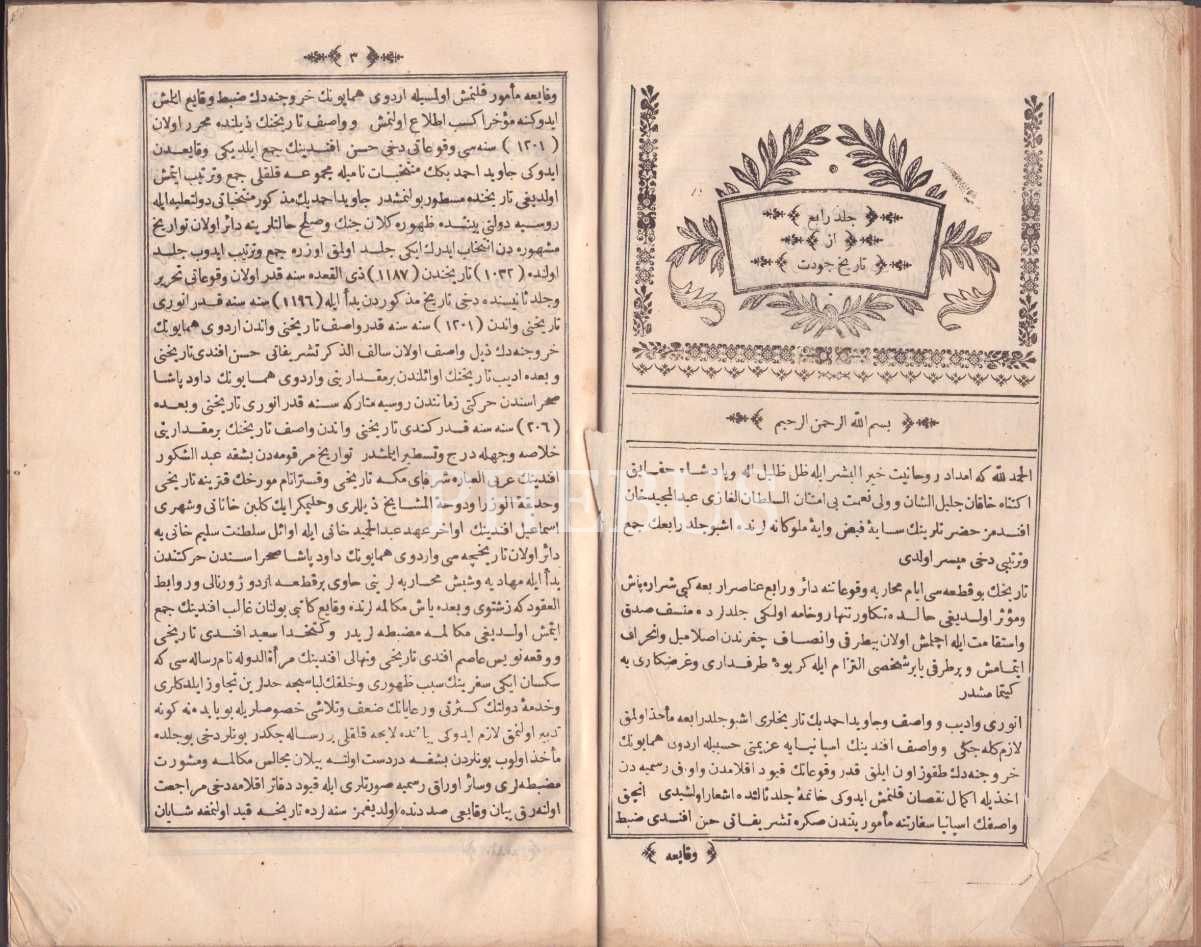 جلد رابع
از
تاریخ جودت
بسم الله الرحمن الرحیم
الحمد لله که امداد روحانیت خیر البشر ایله ظل ظلیل اله و پادشاه حقایق
اکتناه خاقان جلیل الشان و ولی نعمت بی امتنان السلطان الغازی عبدالمجید خان
افندمز حضرتلرینك سایهٔ فیض وایهٔ ملوکانه لرنده اشبو جلد رابعك جمع
وترتیبی دخی میسر اولدی
تاریخك بو قطعه سی ایام محاربه وقوعاتنه دائر و رابع عناصر اربعه کبی شراره پاش
ومؤثر اولدیغی حالده تکاور تنهارو خامه اولکی جلدلرده منصف صدق
واستقامت ایله اچلمش اولان بیطرفی وانصاف چغرندن اصلا میل وانحراف
ایتمامش و برطرفی یا بر شخصی التزام ایله کریوهٔ طرفداری وغرضکاری یه
کیتمامشدر
انوری وادیب و واصف وجاوید احمد بك تاریخلری اشبو جلد رابعه مأخذ اولمق
لازم کله جکی و واصف افندینك اسپانیایه عزیمتی حسبیله اردوی همایونك
خروجنه دك طقوز اون ایلق قدر وقوعاتك قیود اقلامدن واوراق رسمیه دن
اخذیله اکمال نقصان قلنمش ایدوکی خاتمهٔ جلد ثالثده اشعار اولنمشیدی انجق
واصفك اسپانیا سفارتنه مأموریتندن صکره تشریفاتی حسن افندی ضبط
وقایعه
PHEBUS
٣
وقایعه مأمور قلنمش اولمسیله اردوی همایونك خروجنه دك ضبط وقایع ایلمش
ایدوکنه مؤخرا کسب اطلاع اولنمش و واصف تاریخنك ذیلنده محرر اولان
(١٢٠١) سنه سی وقوعاتی دخی حسن افندینك جمع ایلدیکی وقایعدن
ایدوکی جاوید احمد بكك منتخبات نامیله مجموعه قلقلی جمع وترتیب ایتمش
اولدیغی تاریخنده مسطور بولنمشدر جاوید احمد بك مذکور منتخباتی دولتعلیه ایله
روسیه دولتی بیننده ظهوره کلان جنك وصلح حاللرینه دائر اولان تواریخ
مشهوره دن انتخاب ایدرك ایکی جلد اولمق اوزره جمع وترتیب ایدوب جلد
اولنده (١٠٣٢) تاریخندن (١١٨٧) ذی القعده سنه قدر اولان وقوعاتی تحریر
وجلد ثانیسنده دخی تاریخ مذکوردن بدأ ایله (١١٩٦) سنه سنه قدر انوری
تاریخنی واندن (١٢٠١) سنه سنه قدر واصف تاریخنی واندن اردوی همایونك
خروجنه دك ذیل واصف اولان سالف الذکر تشریفاتی حسن افندی تاریخنی
وبعده ادیب تاریخنك اوائلندن بر مقدارینی واردوی همایونك داود پاشا
صحراسندن حرکتی زماندن روسیه متارکه سنه قدر انوری تاریخنی وبعده
(٢٠٦) سنه سنه قدر کندی تاریخنی واندن واصف تاریخنك بر مقدارینی
خلاصه وجهله درج وتسطیر ایلمشدر تواریخ مرقومه دن بشقه عبد الشکور
افندینك عربی العباره شرفای مکه تاریخی وفترانام مورخك قرینه تاریخی
وحدیقة الوزرا ودوحة المشایخ ذیللری وحلیمکرایك کلبن خانانی وشهری
اسماعیل افندینك اواخر عهد عبد الحمید خانی ایله اوائل سلطنت سلیم خانی یه
دائر اولان تاریخچه سی واردوی همایونك داود پاشا صحراسندن حرکتندن
بدأ ایله مهادیه وشبش محاربه لرینی حاوی بر قطعه اردو ژورنالی وروابط
العقود که زشتوی وبعده یاش مکالمه لرنده وقایع کاتبی بولنان غالب افندینك جمع
ایتمش اولدیغی مکالمه مضبطه لریدر وکتخدا سعید افندی تاریخی
و وقعه نویس عاصم افندی تاریخی ونهالی افندینك مرأة الدوله نام رساله سی که
سکسان ایکی سفرینك سبب ظهوری وخلقك لباسجه حدلرین تجاوز ایلدکلری
وخدمهٔ دولتك کثرتی ورعایانك ضعف وتلاشی خصوصلریله بو بابده نه کونه
تدبیر اولنمق لازم ایدوکی یاننده لایحه قلقلی بر رساله جکدر بونلر دخی بو جلده
مأخذ اولوب بونلردن بشقه دردست اولنه بیلان مجالس مکالمه ومشورت
مضبطه لری وسائر اوراق رسمیه صورتلری ایله قیود دفاتر اقلامه دخی مراجعت
اولنه رق بیان وقایعی صددنده اولدیغمز سنه لرده تاریخه قید اولنمغه شایان